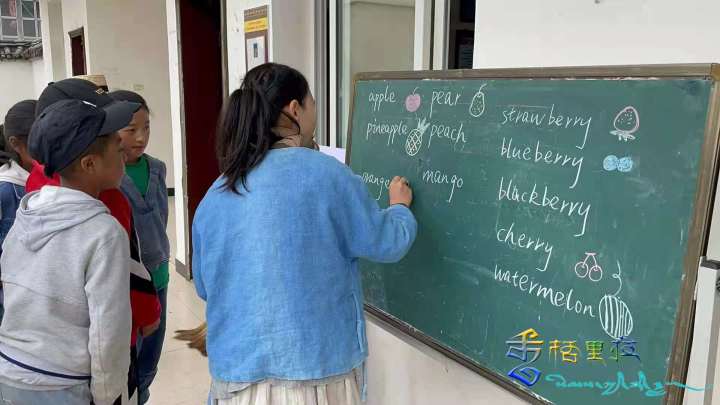 apple pear
pineapple peach
orange mango
strawberry
blueberry
blackberry
cherry
watermelon
香格里拉